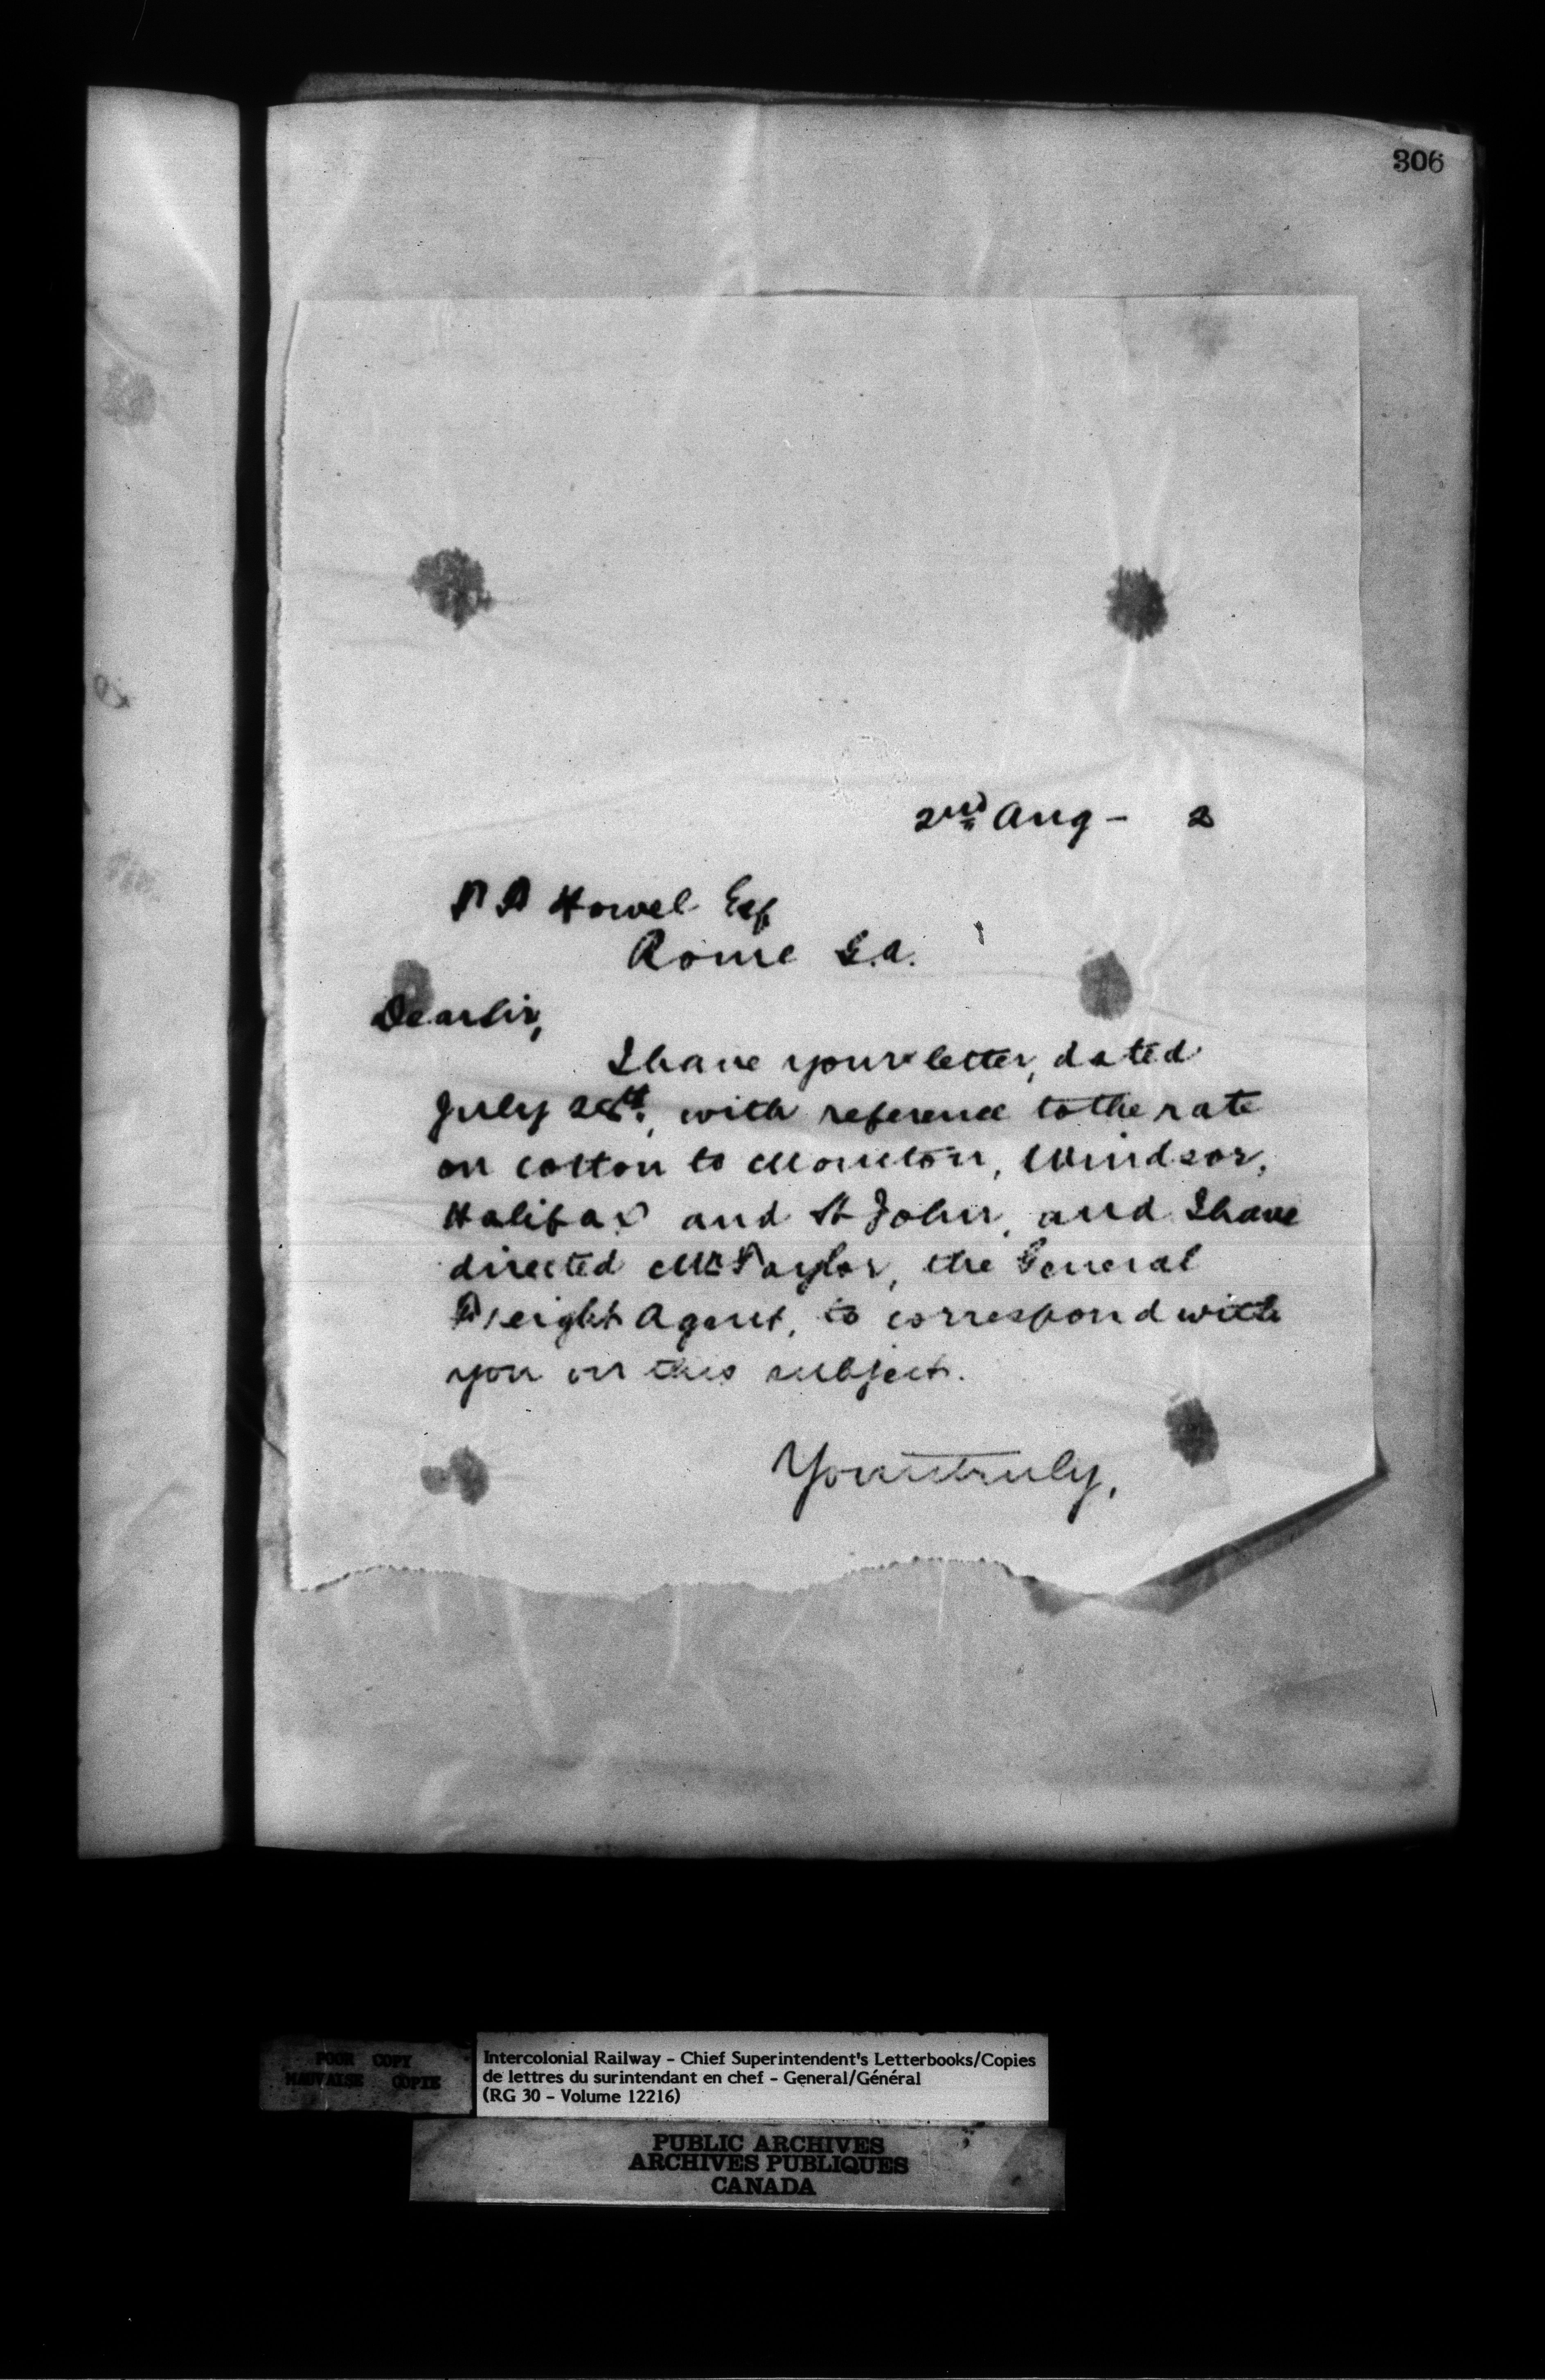 306
2nd Aug - 2
Howel Esq
Rome G.a.
Dear Sir,
I have your letter, dated
July 28th, with reference to the rate
on cotton to Moncton, Windsor,
Halifax and St John, and I have
directed Mr Taylor, the General
Freight Agent, to correspond with
you on this subject.
Yours truly,
POOR COPY
MAUVAISE COPIE
Intercolonial Railway - Chief Superintendent's Letterbooks/Copies
de lettres du surintendant en chef - General/Général
(RG 30 - Volume 12216)
PUBLIC ARCHIVES
ARCHIVES PUBLIQUES
CANADA